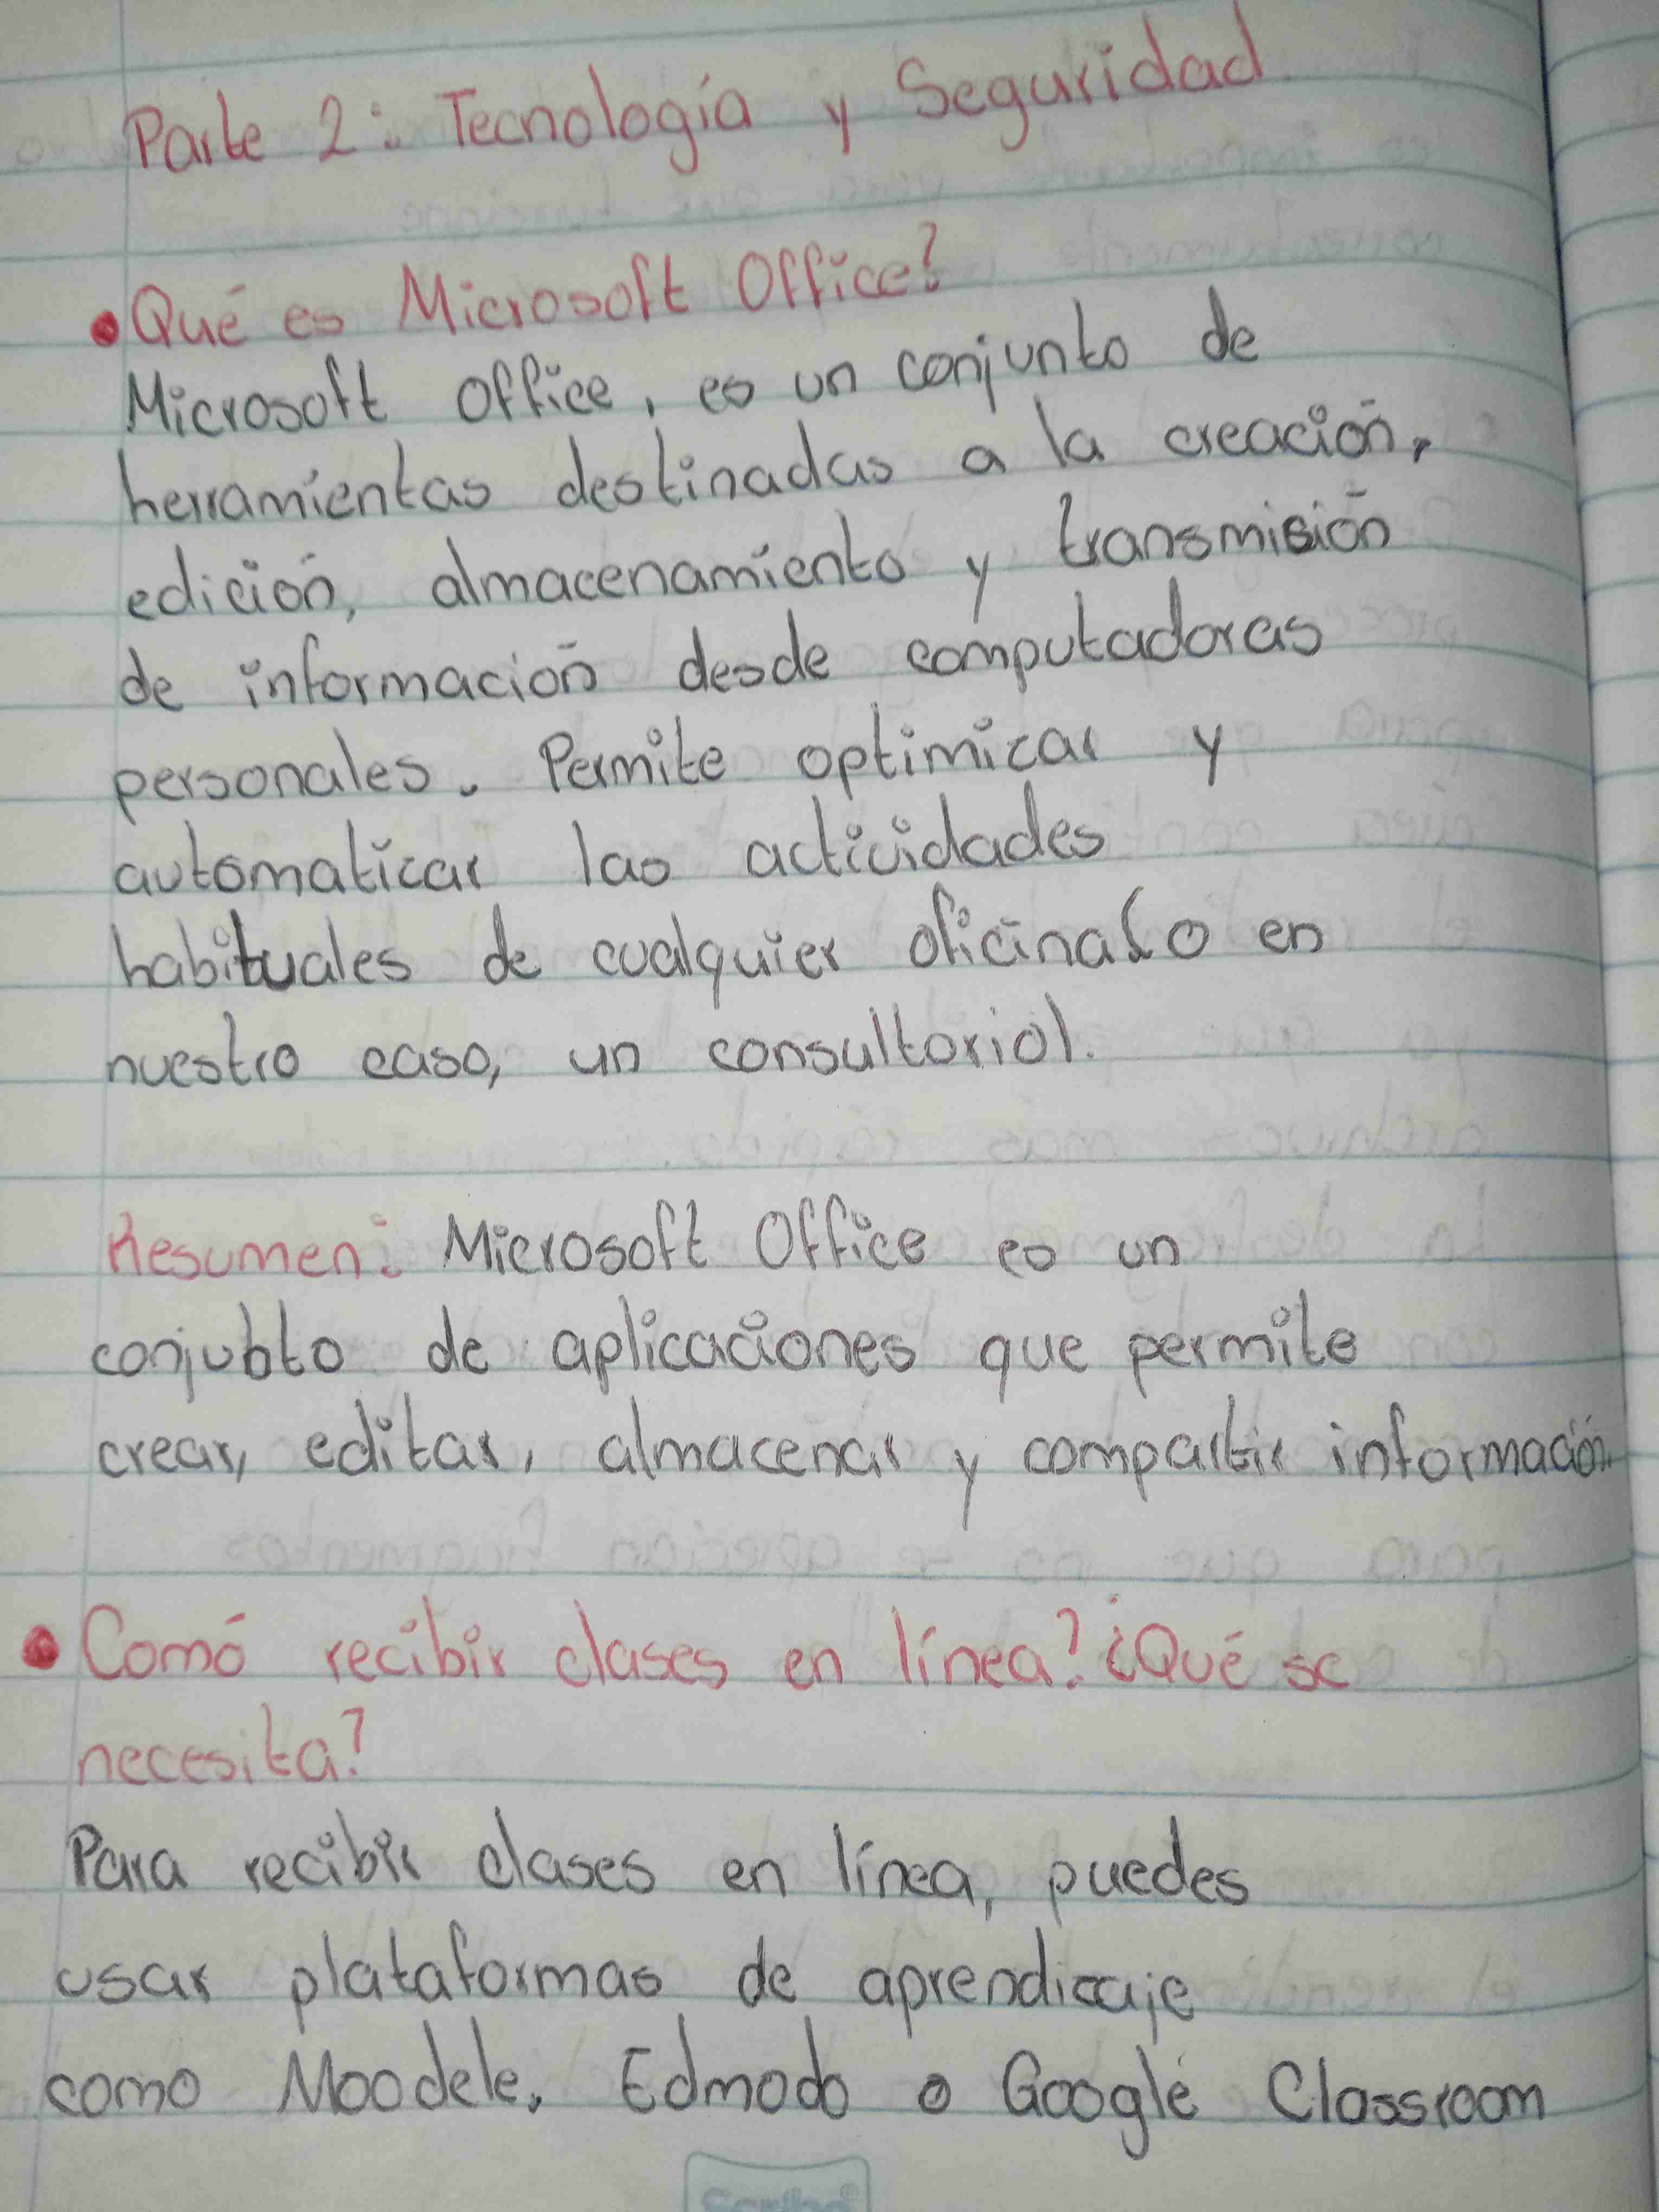 Parte 2: Tecnología y Seguridad
•Qué es Microsoft Office?
Microsoft Office, es un conjunto de
herramientas destinadas a la creación,
edición, almacenamiento y transmisión
de información desde computadoras
personales. Permite optimizar y
automatizar las actividades
habituales de cualquier oficina(o en
nuestro caso, un consultorio).
Resumen: Microsoft Office es un
conjubto de aplicaciones que permite
crear, editar, almacenar y compartir información.
•Comó recibir clases en línea? ¿Qué se
necesita?
Para recibir clases en línea, puedes
usar plataformas de aprendizaje
como Moodele, Edmodo o Google Classroom
Scribe